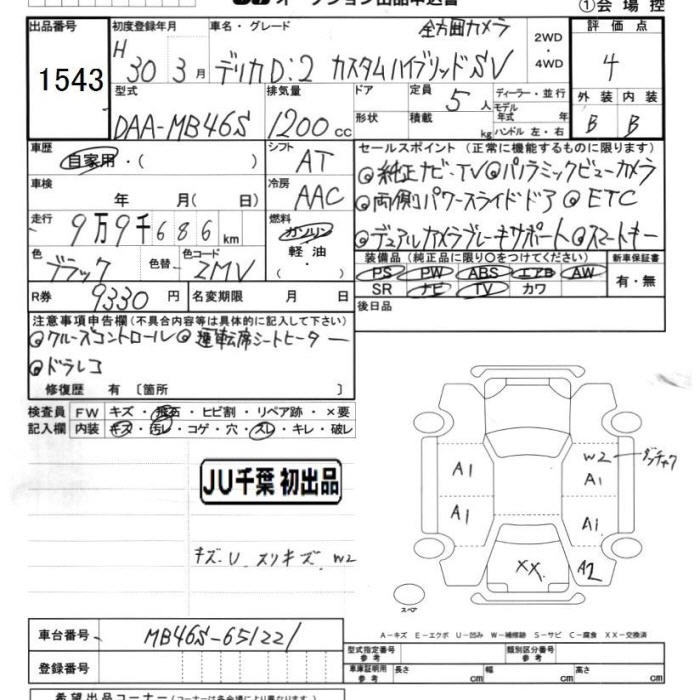 オークション出品申込書
①会場控
出品番号
1543
初度登録年月
H 30 3月
車名・グレード
全方囲カメラ
デリカD:2 カスタムハイブリッドSV
2WD
・
4WD
評価点
4
外装 内装
B B
型式
DAA-MB46S
排気量
1200 cc
ドア
形状
定員 5 人
積載 kg
ディーラー・並行
モデル
年式 年
ハンドル 左・右
車歴
自家用・( )
シフト
AT
車検
年 月(日 )
冷房
AAC
走行
9万9千686 km
燃料
ガソリン
軽油
・( )
色
ブラック
色替
色コード
ZMV
R券 9330 円
名変期限 月 日
セールスポイント (正常に機能するものに限ります)
◎純正ナビ・TV◎パノラミックビューカメラ
◎両側パワースライドドア ◎ETC
◎デュアルカメラブレーキサポート ◎スマートキー
装備品 (純正品に限り○をつけてください)
PS PW ABS エアB AW
SR ナビ TV カワ
新車保証書
有・無
後日品
注意事項申告欄 (不具合内容等は具体的に記入して下さい)
◎クルーズコントロール◎運転席シートヒーター
◎ドラレコ
修復歴 有 〔箇所 〕
検査員
記入欄
FW キズ・飛石・ヒビ割・リペア跡・×要
内装 キズ・汚レ・コゲ・穴・スレ・キレ・破レ
JU千葉 初出品
キズ.U スリキズ.W2
A1
A1
W2
A1
A1
A2
XX
スペア
A−キズ E−エクボ U−凹み W−補修跡 S−サビ C−腐食 XX−交換済
車台番号 MB46S-651221
登録番号
型式指定番号
参考
類別区分番号
参考
車庫証明用
参考
長さ cm
幅 cm
高さ cm
希望出品コーナー (コーナーは各会場により異なります)